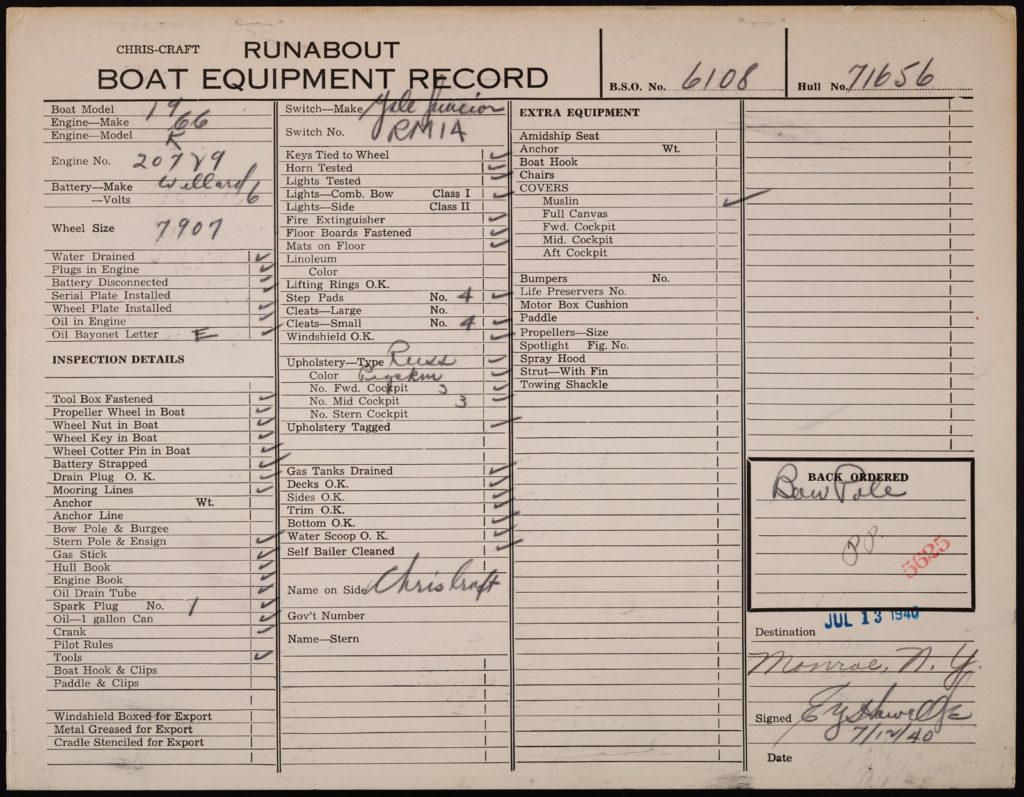 CHRIS-CRAFT RUNABOUT
BOAT EQUIPMENT RECORD
B.S.O. No. 6108
Hull No. 71656
Boat Model 19
Engine—Make 66
Engine—Model K
Engine No. 20789
Battery—Make Willard
—Volts 6
Wheel Size 7907
Water Drained ✓
Plugs in Engine ✓
Battery Disconnected ✓
Serial Plate Installed ✓
Wheel Plate Installed ✓
Oil in Engine ✓
Oil Bayonet Letter E ✓
INSPECTION DETAILS
Tool Box Fastened ✓
Propeller Wheel in Boat ✓
Wheel Nut in Boat ✓
Wheel Key in Boat ✓
Wheel Cotter Pin in Boat ✓
Battery Strapped ✓
Drain Plug O. K. ✓
Mooring Lines ✓
Anchor Wt.
Anchor Line
Bow Pole & Burgee
Stern Pole & Ensign ✓
Gas Stick ✓
Hull Book ✓
Engine Book ✓
Oil Drain Tube ✓
Spark Plug No. 1 ✓
Oil—1 gallon Can ✓
Crank ✓
Pilot Rules
Tools ✓
Boat Hook & Clips
Paddle & Clips
Windshield Boxed for Export
Metal Greased for Export
Cradle Stenciled for Export
Switch—Make Yale Juncior
Switch No. RM1A
Keys Tied to Wheel ✓
Horn Tested ✓
Lights Tested ✓
Lights—Comb. Bow Class I ✓
Lights—Side Class II
Fire Extinguisher ✓
Floor Boards Fastened ✓
Mats on Floor ✓
Linoleum
Color
Lifting Rings O.K.
Step Pads No. 4 ✓
Cleats—Large No.
Cleats—Small No. 4 ✓
Windshield O.K. ✓
Upholstery—Type Russ ✓
Color Pigskin ✓
No. Fwd. Cockpit 3 ✓
No. Mid Cockpit 3 ✓
No. Stern Cockpit
Upholstery Tagged ✓
Gas Tanks Drained ✓
Decks O.K. ✓
Sides O.K. ✓
Trim O.K. ✓
Bottom O.K. ✓
Water Scoop O. K. ✓
Self Bailer Cleaned ✓
Name on Side Chris Craft
Gov't Number
Name—Stern
EXTRA EQUIPMENT
Amidship Seat
Anchor Wt.
Boat Hook
Chairs
COVERS
Muslin ✓
Full Canvas
Fwd. Cockpit
Mid. Cockpit
Aft Cockpit
Bumpers No.
Life Preservers No.
Motor Box Cushion
Paddle
Propellers—Size
Spotlight Fig. No.
Spray Hood
Strut—With Fin
Towing Shackle
BACK ORDERED
Bow Pole
PP.
5625
JUL 13 1940
Destination
Monroe, N.Y.
Signed
7/12/40
Date